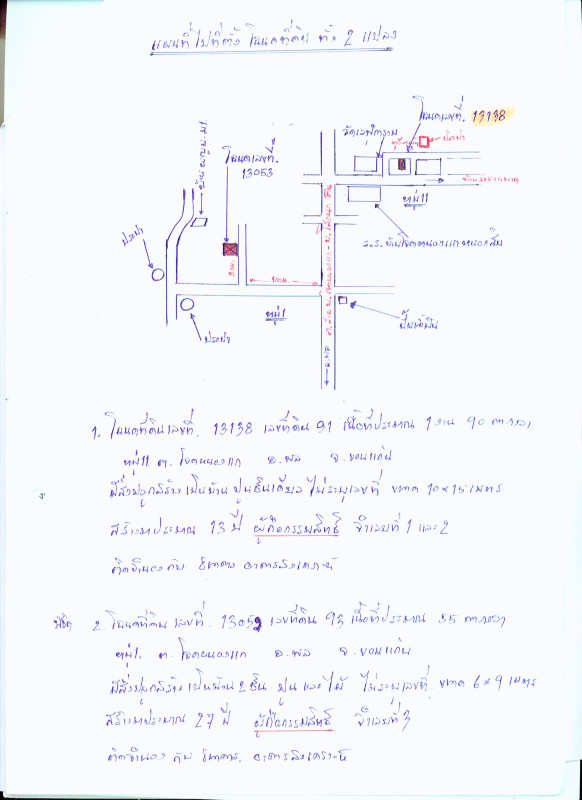 แผนที่ไปที่ตั้ง โฉนดที่ดิน ทั้ง 2 แปลง
โฉนดเลขที่. 13138
ประปา
หมู่11
โฉนดเลขที่.
13053
ประปา
หมู่1
ประปา
ปั๊มน้ำมัน
1. โฉนดที่ดินเลขที่. 13138 เลขที่ดิน 91 เนื้อที่ประมาณ 1 งาน 90 ตารางวา
หมู่11 ต. โจดหนองแก อ.พล จ.ขอนแก่น
มีสิ่งปลูกสร้าง เป็นบ้าน ปูนชั้นเดียว ไม่ระบุเลขที่ ขนาด 10x15 เมตร
สร้างมาประมาณ 13 ปี ผู้ถือกรรมสิทธิ์ จำเลยที่ 1 และ 2
ติดจำนอง กับ ธนาคาร อาคารสงเคราะห์
2. โฉนดที่ดิน เลขที่. 13052 เลขที่ดิน 93 เนื้อที่ประมาณ 55 ตารางวา
หมู่1. ต. โจดหนองแก อ.พล จ.ขอนแก่น
มีสิ่งปลูกสร้าง เป็นบ้าน 2 ชั้น ปูน และไม้ ไม่ระบุเลขที่. ขนาด 6x9 เมตร
สร้างมาประมาณ 27 ปี ผู้ถือกรรมสิทธิ์ จำเลยที่ 3
ติดจำนอง กับ ธนาคาร. อาคารสงเคราะห์